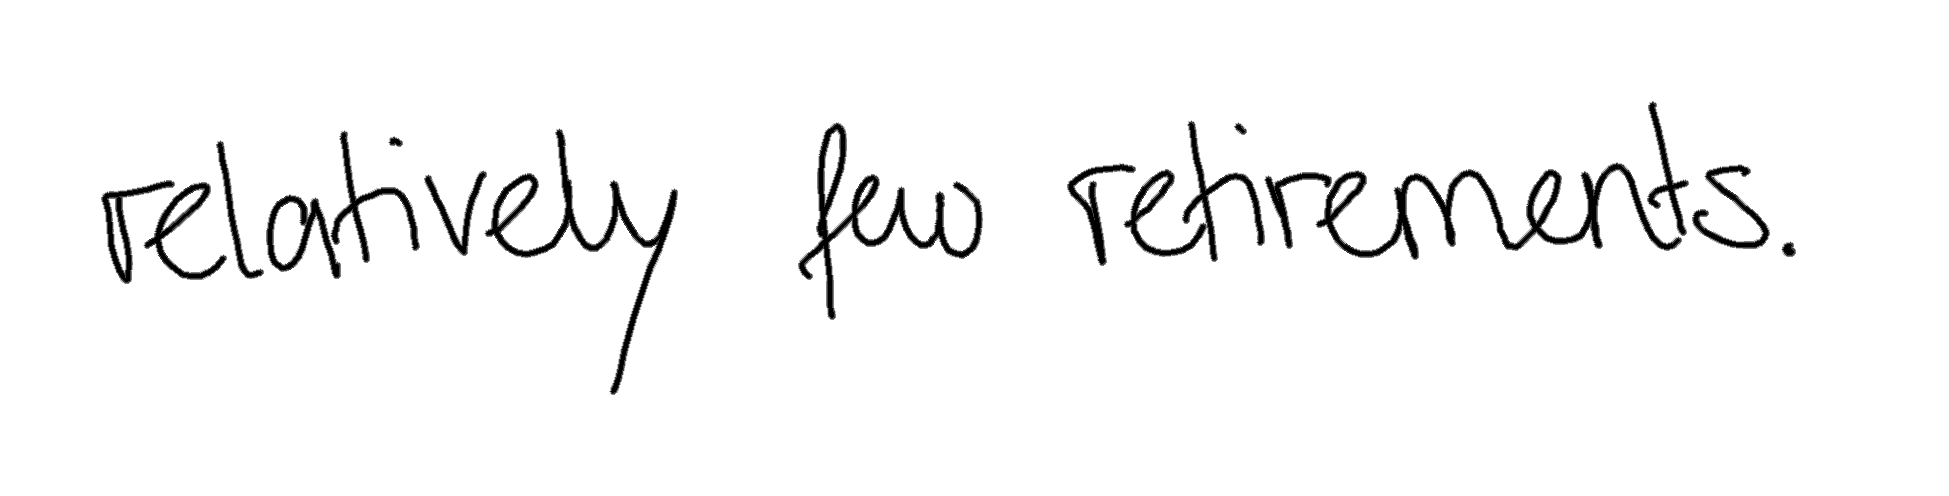 relatively few retirements.